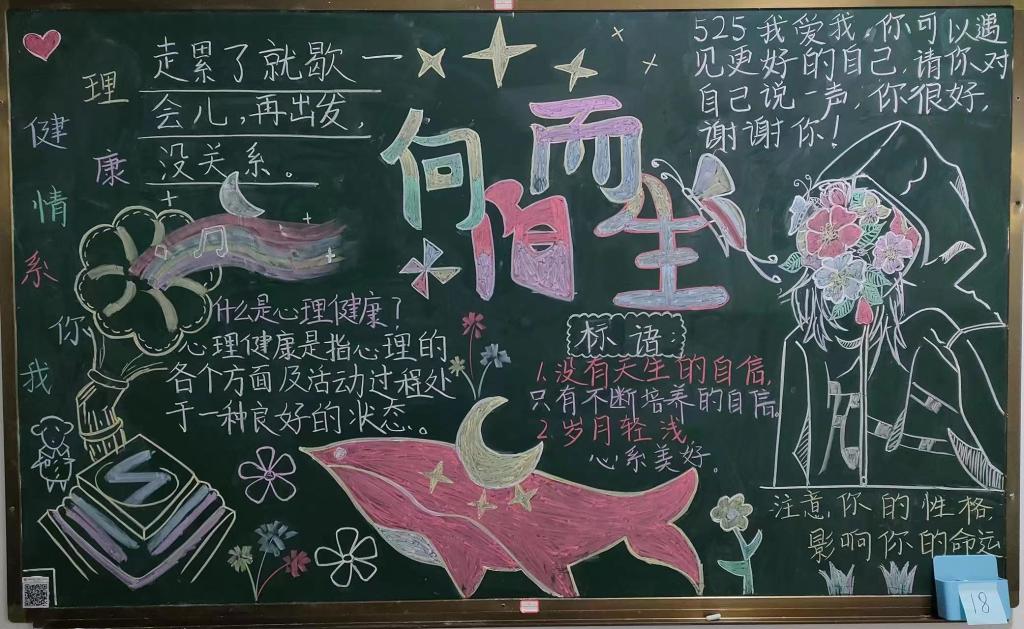 理健康
情系你我
走累了就歇一
会儿,再出发,
没关系。
向而
陌生
525我爱我,你可以遇
见更好的自己,请你对
自己说一声,你很好,
谢谢你!
什么是心理健康?
心理健康是指心理的
各个方面及活动过程处
于一种良好的状态。
标语
1.没有天生的自信,
只有不断培养的自信。
2.岁月轻浅,
心系美好。
注意,你的性格,
影响你的命运
18